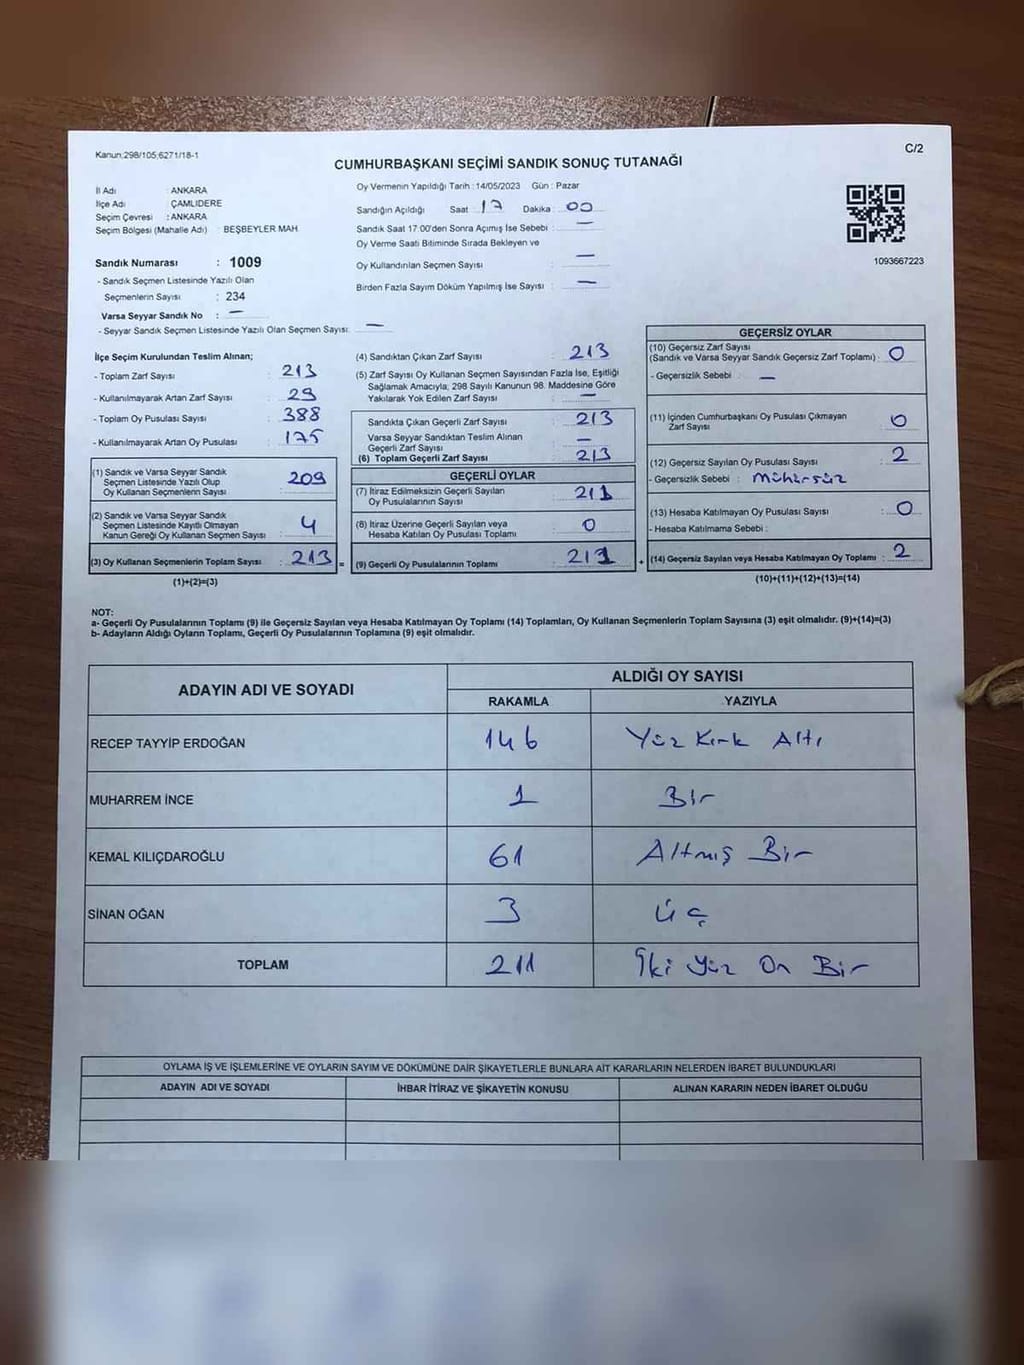 Kanun;298/105;6271/18-1
C/2
CUMHURBAŞKANI SEÇİMİ SANDIK SONUÇ TUTANAĞI
İl Adı : ANKARA
İlçe Adı : ÇAMLIDERE
Seçim Çevresi : ANKARA
Seçim Bölgesi (Mahalle Adı) : BEŞBEYLER MAH.
Sandık Numarası : 1009
- Sandık Seçmen Listesinde Yazılı Olan
Seçmenlerin Sayısı : 234
Varsa Seyyar Sandık No : —
- Seyyar Sandık Seçmen Listesinde Yazılı Olan Seçmen Sayısı: —
Oy Vermenin Yapıldığı Tarih : 14/05/2023 Gün : Pazar
Sandığın Açıldığı Saat 17 Dakika : 00
Sandık Saat 17:00'den Sonra Açımış İse Sebebi : —
Oy Verme Saati Bitiminde Sırada Bekleyen ve
Oy Kullandırılan Seçmen Sayısı : —
Birden Fazla Sayım Döküm Yapılmış İse Sayısı : —
1093667223
İlçe Seçim Kurulundan Teslim Alınan;
- Toplam Zarf Sayısı : 213
- Kullanılmayarak Artan Zarf Sayısı : 29
- Toplam Oy Pusulası Sayısı : 388
- Kullanılmayarak Artan Oy Pusulası : 175
(1) Sandık ve Varsa Seyyar Sandık
Seçmen Listesinde Yazılı Olup
Oy Kullanan Seçmenlerin Sayısı : 209
(2) Sandık ve Varsa Seyyar Sandık
Seçmen Listesinde Kayıtlı Olmayan
Kanun Gereği Oy Kullanan Seçmen Sayısı : 4
(3) Oy Kullanan Seçmenlerin Toplam Sayısı : 213 =
(1)+(2)=(3)
(4) Sandıktan Çıkan Zarf Sayısı : 213
(5) Zarf Sayısı Oy Kullanan Seçmen Sayısından Fazla İse, Eşitliği
Sağlamak Amacıyla; 298 Sayılı Kanunun 98. Maddesine Göre
Yakılarak Yok Edilen Zarf Sayısı : —
Sandıkta Çıkan Geçerli Zarf Sayısı : 213
Varsa Seyyar Sandıktan Teslim Alınan
Geçerli Zarf Sayısı : —
(6) Toplam Geçerli Zarf Sayısı : 213
GEÇERLİ OYLAR
(7) İtiraz Edilmeksizin Geçerli Sayılan
Oy Pusulalarının Sayısı : 211
(8) İtiraz Üzerine Geçerli Sayılan veya
Hesaba Katılan Oy Pusulası Toplamı : 0
(9) Geçerli Oy Pusulalarının Toplamı : 211 +
GEÇERSİZ OYLAR
(10) Geçersiz Zarf Sayısı
(Sandık ve Varsa Seyyar Sandık Geçersiz Zarf Toplamı) : 0
- Geçersizlik Sebebi : —
(11) İçinden Cumhurbaşkanı Oy Pusulası Çıkmayan
Zarf Sayısı : 0
(12) Geçersiz Sayılan Oy Pusulası Sayısı : 2
- Geçersizlik Sebebi : mühürsüz
(13) Hesaba Katılmayan Oy Pusulası Sayısı : 0
- Hesaba Katılmama Sebebi :
(14) Geçersiz Sayılan veya Hesaba Katılmayan Oy Toplamı : 2
(10)+(11)+(12)+(13)=(14)
NOT:
a- Geçerli Oy Pusulalarının Toplamı (9) ile Geçersiz Sayılan veya Hesaba Katılmayan Oy Toplamı (14) Toplamları, Oy Kullanan Seçmenlerin Toplam Sayısına (3) eşit olmalıdır. (9)+(14)=(3)
b- Adayların Aldığı Oyların Toplamı, Geçerli Oy Pusulalarının Toplamına (9) eşit olmalıdır.
ADAYIN ADI VE SOYADI
ALDIĞI OY SAYISI
RAKAMLA YAZIYLA
RECEP TAYYİP ERDOĞAN 146 Yüz Kırk Altı
MUHARREM İNCE 1 Bir
KEMAL KILIÇDAROĞLU 61 Altmış Bir
SİNAN OĞAN 3 Üç
TOPLAM 211 İki Yüz On Bir
OYLAMA İŞ VE İŞLEMLERİNE VE OYLARIN SAYIM VE DÖKÜMÜNE DAİR ŞİKAYETLERLE BUNLARA AİT KARARLARIN NELERDEN İBARET BULUNDUKLARI
ADAYIN ADI VE SOYADI İHBAR İTİRAZ VE ŞİKAYETİN KONUSU ALINAN KARARIN NEDEN İBARET OLDUĞU